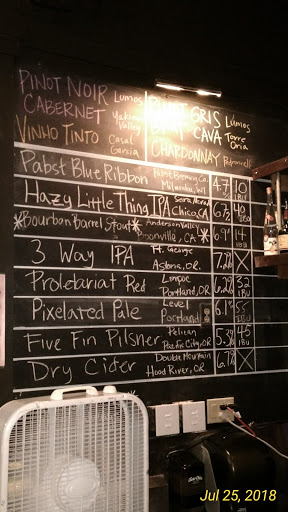 PINOT NOIR Lumos
CABERNET Yakima Valley
VINHO TINTO Casal Garcia
PINOT GRIS Lumos
CAVA Torre Oria
CHARDONNAY
Pabst Blue Ribbon Pabst Brewing Co. Milwaukee, WI 4.7 10 IBU
Hazy Little Thing IPA Sierra Nevada Chico, CA
*Bourbon Barrel Stout* Anderson Valley Boonville, CA * 6.9 14 IBU
3 Way IPA Ft. George Astoria, OR.
Proletariat Red Lompoc Portland, OR. 32 IBU
Pixelated Pale Level Portland 6.1 55 IBU
Five Fin Pilsner Pelican Pacific City, OR 45 IBU
Dry Cider Double Mountain Hood River, OR 6.7
Jul 25, 2018